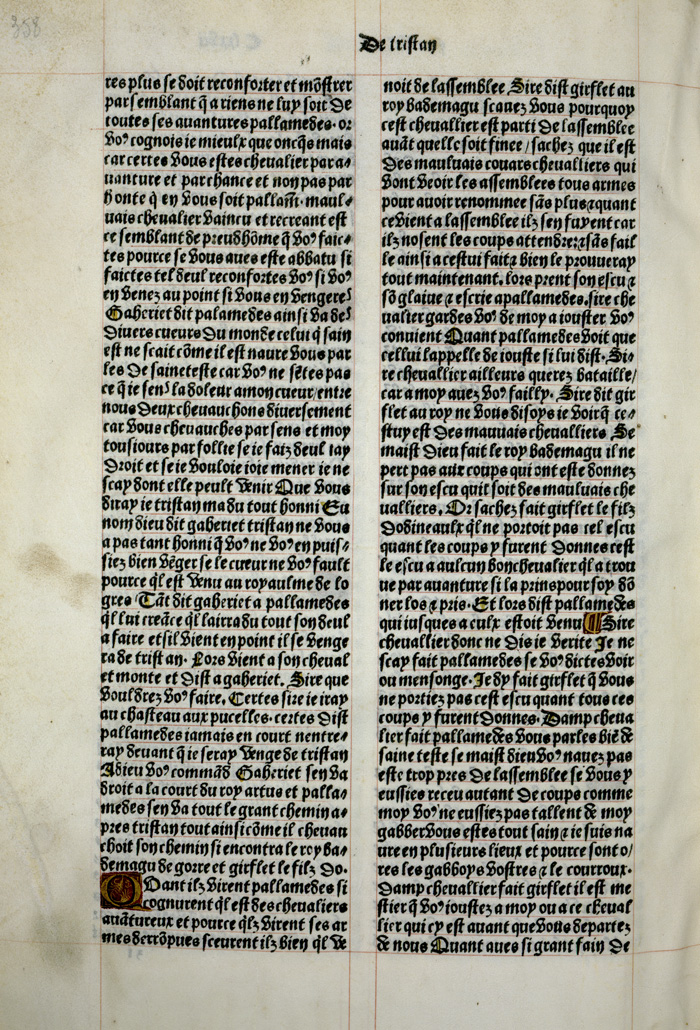 358
De tristan
res plus se doit reconforter et mõstrer
par semblant q̃ a riens ne luy soit De
toutes ses auantures pallamedes. or
Vo9 cognois ie mieulx que oncq̃s mais
car certes Vous estes cheualier par a/
uanture et par chance et non pas par
honte q̃ en Vous soit pallam̃. maul/
uais cheualier Vaincu et recreant est
ce semblant de preudhõme q̃ Vo9 faic/
tes pource se Vous aues este abbatu si
faictes tel deul reconfortes Vo9 si Vo9
en Venez au point si Vous en Vengeres
Gaheriet dit palamedes ainsi Va des
Diuers cueurs Du monde celui q̃ sain
est ne scait cõme il est naure Vous par
les De saine teste car Vo9 ne sẽtes pas
ce q̃ ie sens la doleur a mon cueur/entre
nous Deux cheuauchons diuersement
car Vous cheuauches par sens et moy
tousiours par follie se ie faiz deul iay
Droit et se ie Vouloie ioie mener ie ne
scay dont elle peult Venir Que Vous
diray ie tristan ma du tout honni En
nom dieu dit gaheriet tristan ne Vous
a pas tant honni q̃ Vo9 ne Vo9 en puis/
siez bien Vẽger se le cueur ne Vo9 fault
pource ql̃ est Venu au royaulme de lo
gres/ Tãt dit gaheriet a pallamedes
ql̃ lui creãce ql̃ lairra du tout son deul
a faire et sil Vient en point il se Venge
ra de tristan. Lors Vient a son cheual
et monte et Dist a gaheriet. Sire que
Vouldrez Vo9 faire. Certes sire ie iray
au chasteau aux pucelles. certes Dist
pallamedes iamais en court nentre/
ray deuant q̃ ie seray Venge de tristan
Adieu Vo9 commãd Gaheriet sen Va
droit a la court du roy artus et palla/
medes sen Va tout le grant chemin a/
pres tristan tout ainsi cõme il cheuau
choit son chemin si encontra le roy ba/
demagu de gorre et girflet le filz Do.
QUant ilz Virent pallamedes si
cognurent ql̃ est des cheualiers
auãtureux et pource qlz̃ Virent ses ar
mes derrõpues sceurent ilz bien ql̃ Ve
noit de lassemblee Sire dist girflet au
roy bademagu scauez Vous pourquoy
cest cheuallier est parti De lassemblee
auãt quelle soit finee/sachez que il est
Des mauluais couars cheualliers qui
Vont Veoir les assemblees tous armes
pour auoir renommee sãs plus ⁊ quant
ce Vient a lassemblee ilz sen fuyent car
ilz nosent les coups attendre: ⁊ sãs fail
le ainsi a cestui fait ⁊ bien le prouueray
tout maintenant. lors prent son escu ⁊
sõ glaiue ⁊ escrie a pallamedes. sire che
ualier gardes Vo9 de moy a iouster Vo9
conuient Quant pallamedes Voit que
cellui lappelle de iouste si lui dist. Si/
re cheuallier ailleurs querez bataille/
car a moy auez Vo9 failly. Sire dit gir
flet au roy ne Vous disoye ie Voir q̃ ce/
stuy est Des mauuais cheualliers Se
maist Dieu fait le roy bademagu il ne
pert pas aux coups qui ont este donnez
sur son escu quil soit des mauluais che
ualliers. Or sachez fait girflet le filz
Dodineaulx ql̃ ne portoit pas cel escu
quant les coups y furent Donnes cest
le escu a aulcun bon cheualier ql̃ a trou
ue par auanture si la prins pour soy dõ
ner los ⁊ pris. Et lors dist pallamedes
qui iusques a eulx estoit Venu ¶ Sire
cheuallier donc ne Dis ie Verite Je ne
scay fait pallamedes se Vo9 dictes Voir
ou mensonge. Je dy fait girflet q̃ Vous
ne portiez pas cest escu quant tous ces
coups y furent Donnes. Damp cheua
lier fait pallamedes Vous parles biẽ de
saine teste se maist dieu Vo9 nauez pas
este trop pres De lassemblee se Vous y
eussies receu autant De coups comme
moy Vo9 ne eussiez pas tallent de moy
gabber Vous estes tout sain ⁊ ie suis na
ure en plusieurs lieux et pource sont o/
res les gabboys Vostres ⁊ le courroux.
Damp cheuallier fait girflet il est me
stier q̃ Vo9 ioustez a moy ou a ce cheual
lier qui cy est auant que Vous departez
de nous Quant aues si grant fain De